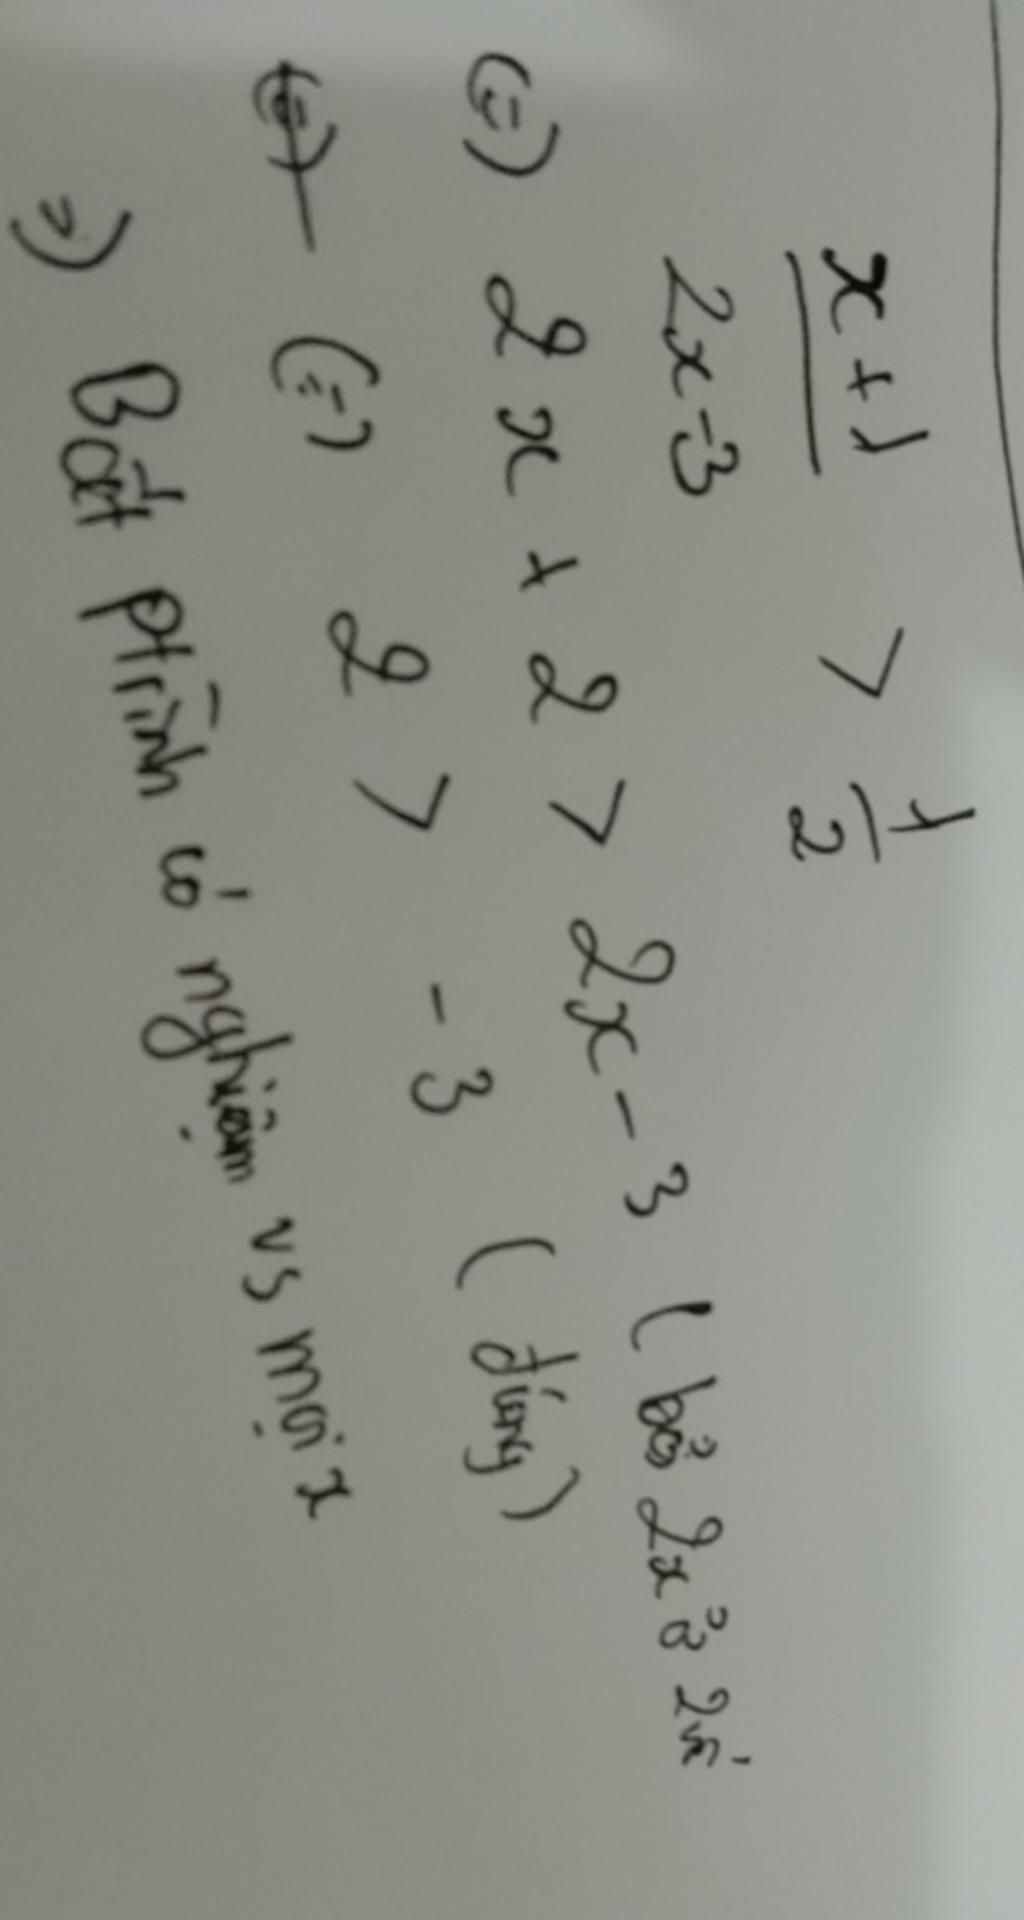 x + 1 / 2x - 3 > 1/2
(=) 2x + 2 > 2x - 3 (bỏ 2x ở 2 vế)
(=) 2 > - 3 (đúng)
=) Bất ptrình có nghiệm vs mọi x